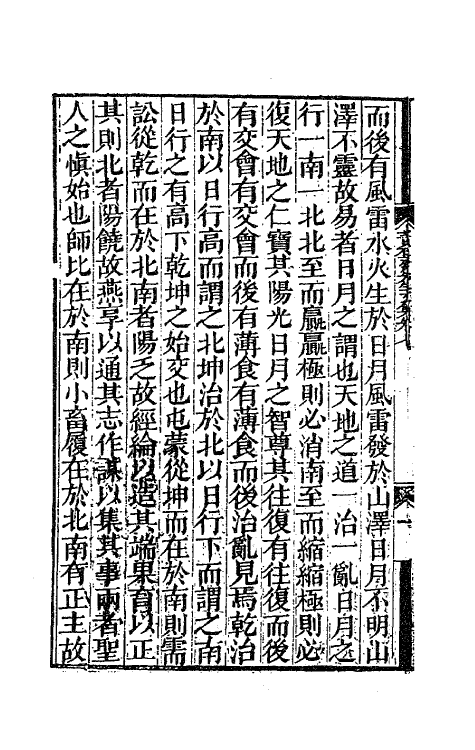 而後有風雷水火生於日月風雷發於山澤日月不明山
澤不靈故易者日月之謂也天地之道一治一亂日月之
行一南一北北至而贏贏極則必消南至而縮縮極則必
復天地之仁寶其陽光日月之智尊其往復有往復而後
有交會有交會而後有薄食有薄食而後治亂見焉乾治
於南以日行高而謂之北坤治於北以日行下而謂之南
日行之有高下乾坤之始交也屯蒙從坤而在於南則需
訟從乾而在於北南者陽之故經綸以造其端果育以正
其則北者陽饒故燕享以通其志作謀以集其事兩者聖
人之愼始也師比在於南則小畜履在於北南有正主故